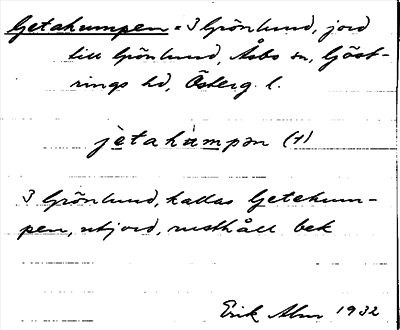 Getakumpen = 3 Grönlund, jord
till Grönlund, Åsbo sn, Göst-
rings hd, Österg. l.
jètakùmpən (1)
3 Grönlund, kallas Getekum-
pen, utjord, rusthåll bek
Erik Alm 1932